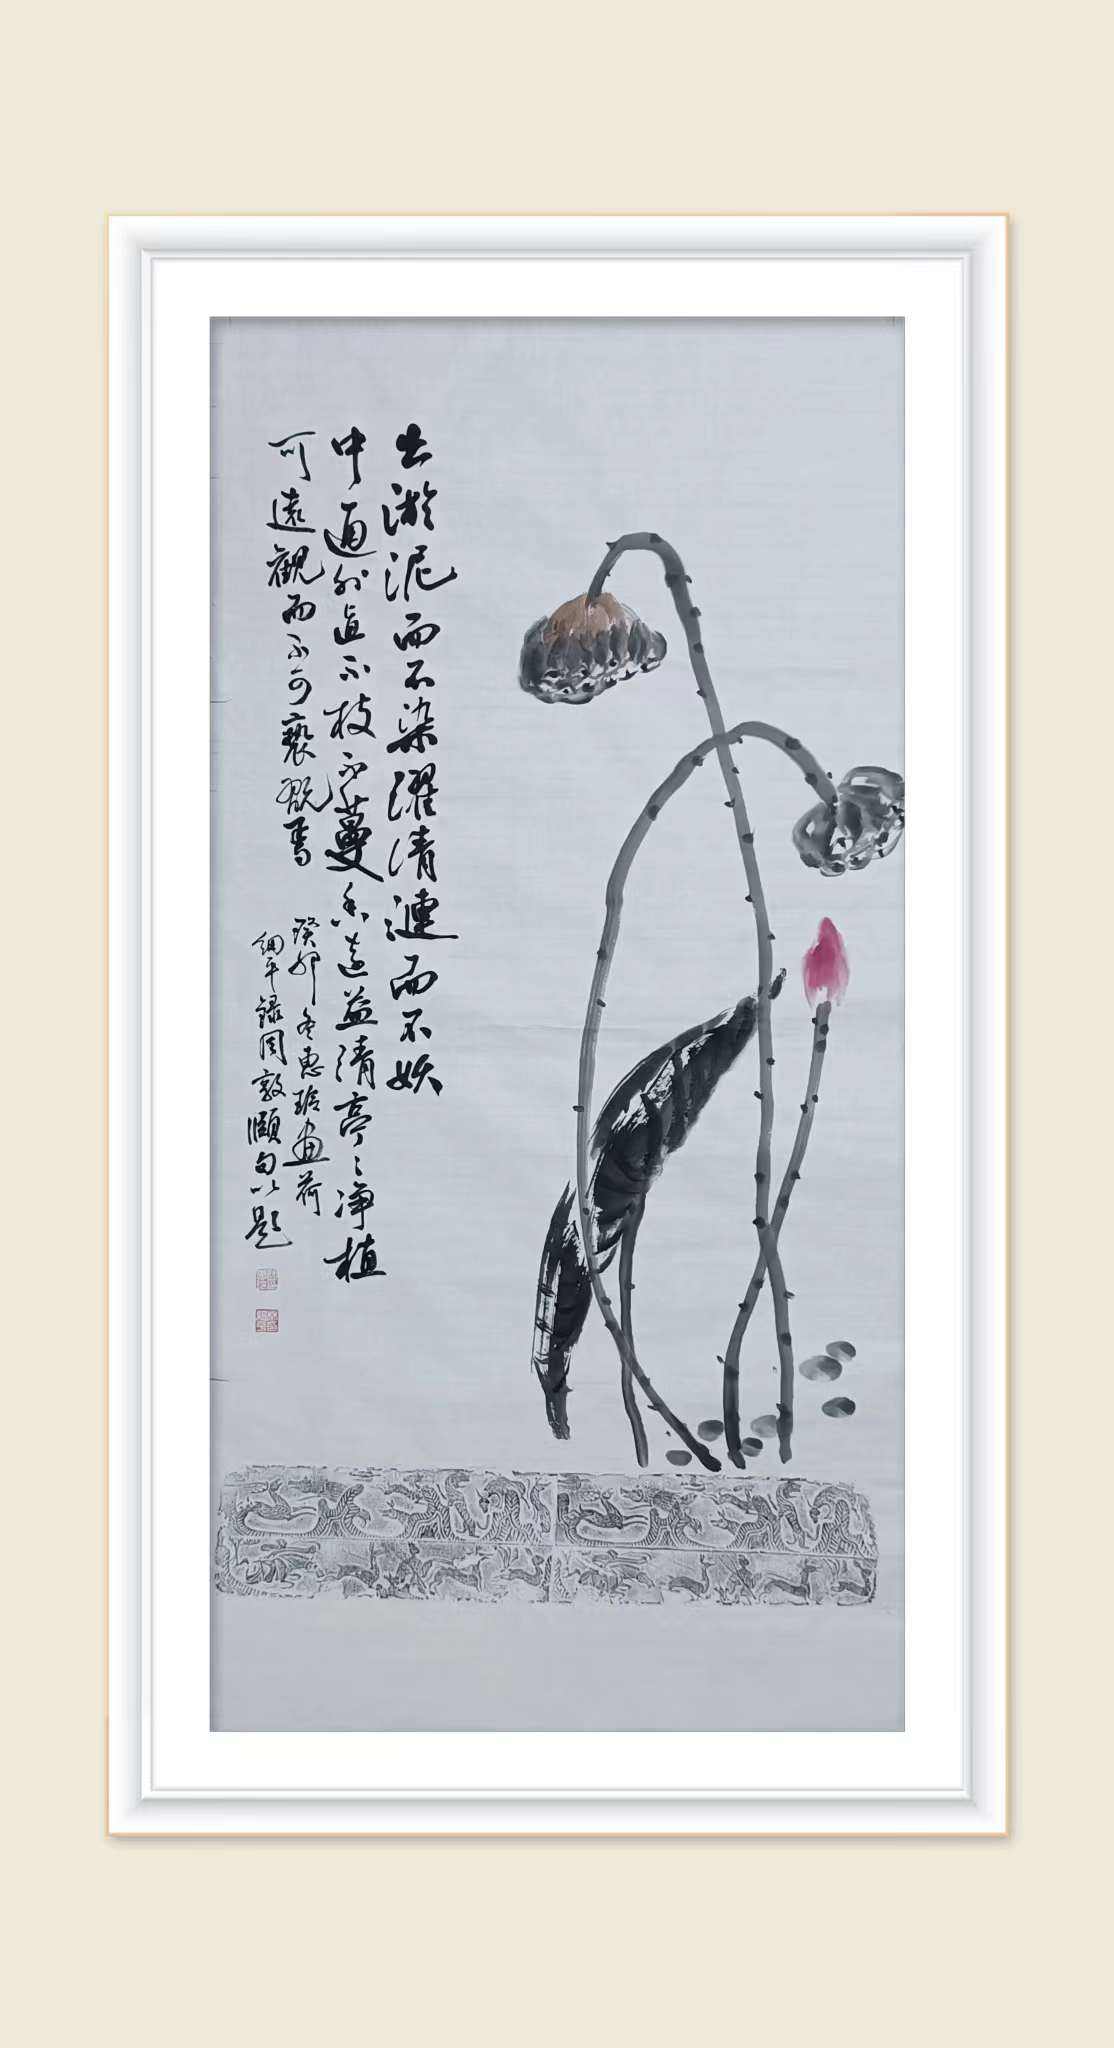 出淤泥而不染濯清漣而不妖
中通外直不枝不蔓香遠益清亭〻净植
可遠觀而不可褻翫焉
癸卯冬惠珍畫荷
細平録周敦頤句以題